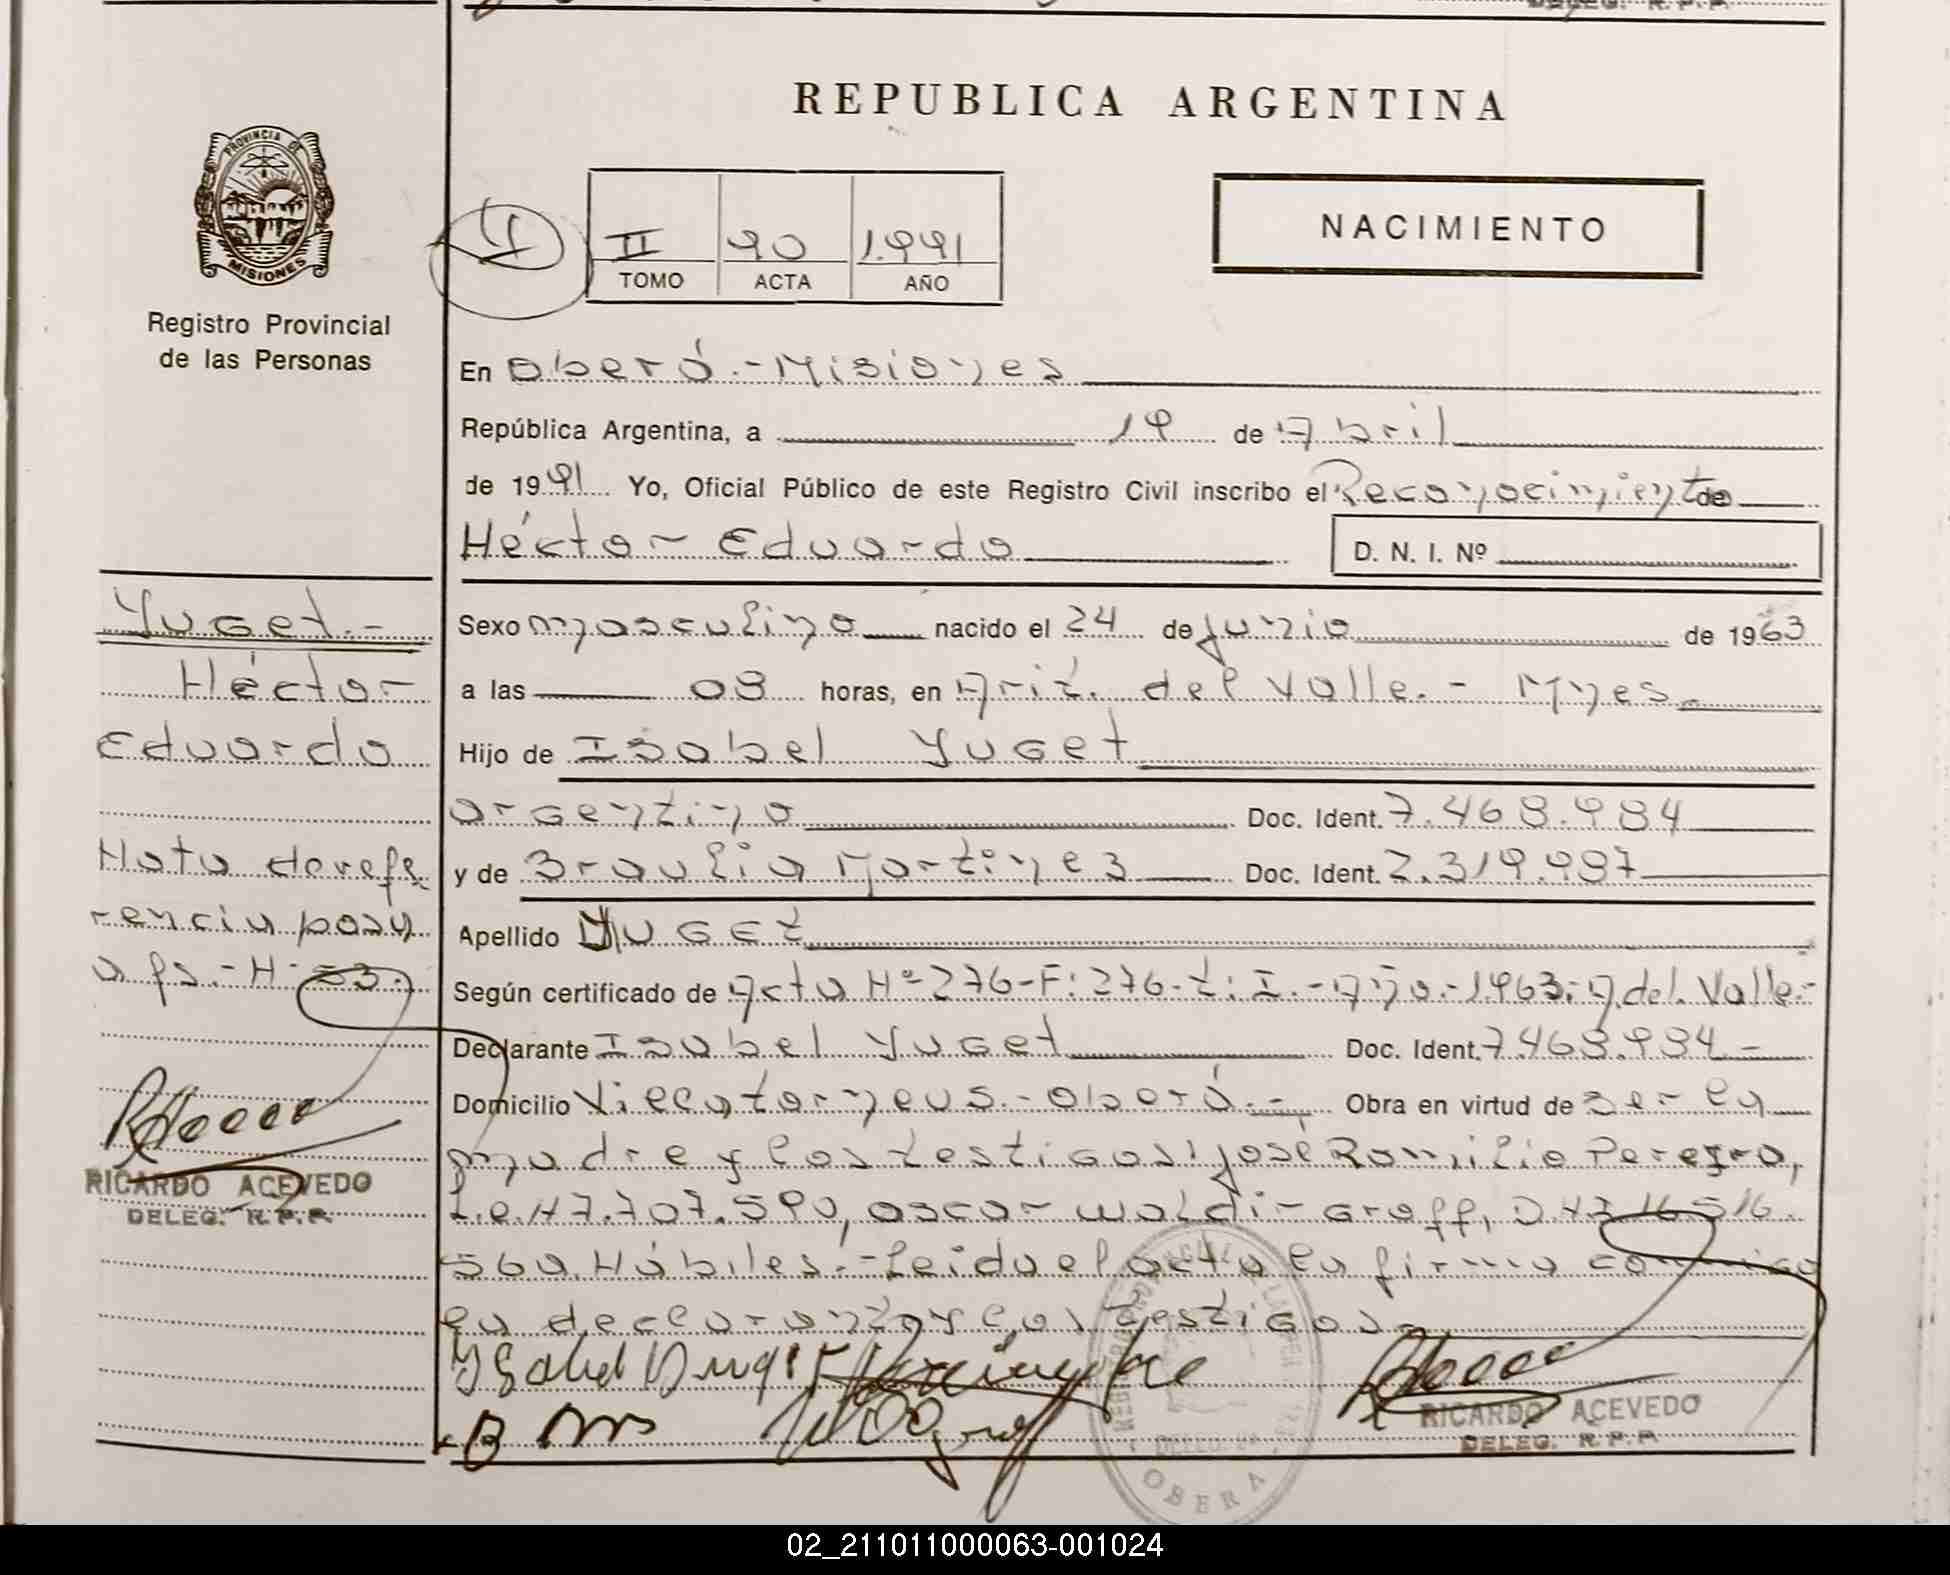 REPUBLICA ARGENTINA
PROVINCIA DE
MISIONES
Registro Provincial
de las Personas
II
90
1.991
TOMO
ACTA
AÑO
NACIMIENTO
En Oberá.-Misiones
República Argentina, a 19 de Abril
de 1991 Yo, Oficial Público de este Registro Civil inscribo el Reconocimiento de
Héctor Eduardo D. N. I. Nº
Sexo masculino nacido el 24 de junio de 1963
a las 08 horas, en Arit. del Valle.- Mnes.
Hijo de Isabel Yuget
argentina Doc. Ident. 7.468.984
y de Braulia Martinez Doc. Ident. 2.319.997
Apellido YUGET
Según certificado de Acta Nº 276-F: 276-t: I.-Año.-1963.-A. del. Valle.-
Declarante Isabel Yuget Doc. Ident. 7.468.984-
Domicilio Oberá.- Obra en virtud de ser la
madre y los testigos: José Romilio Pereyra,
L.e. Nº 7.707.590, oscar waldir Groff, D. Nº 16.516
560. Hábiles.- Leida el acta la firma conmigo
la declarante y los testigos.
Yuget.-
Héctor
Eduardo
Nota de refe
rencia pasa
a fs.-N-53.
RICARDO ACEVEDO
DELEG. R.P.P.
RICARDO ACEVEDO
DELEG. R.P.P.
OBERA
02_211011000063-001024